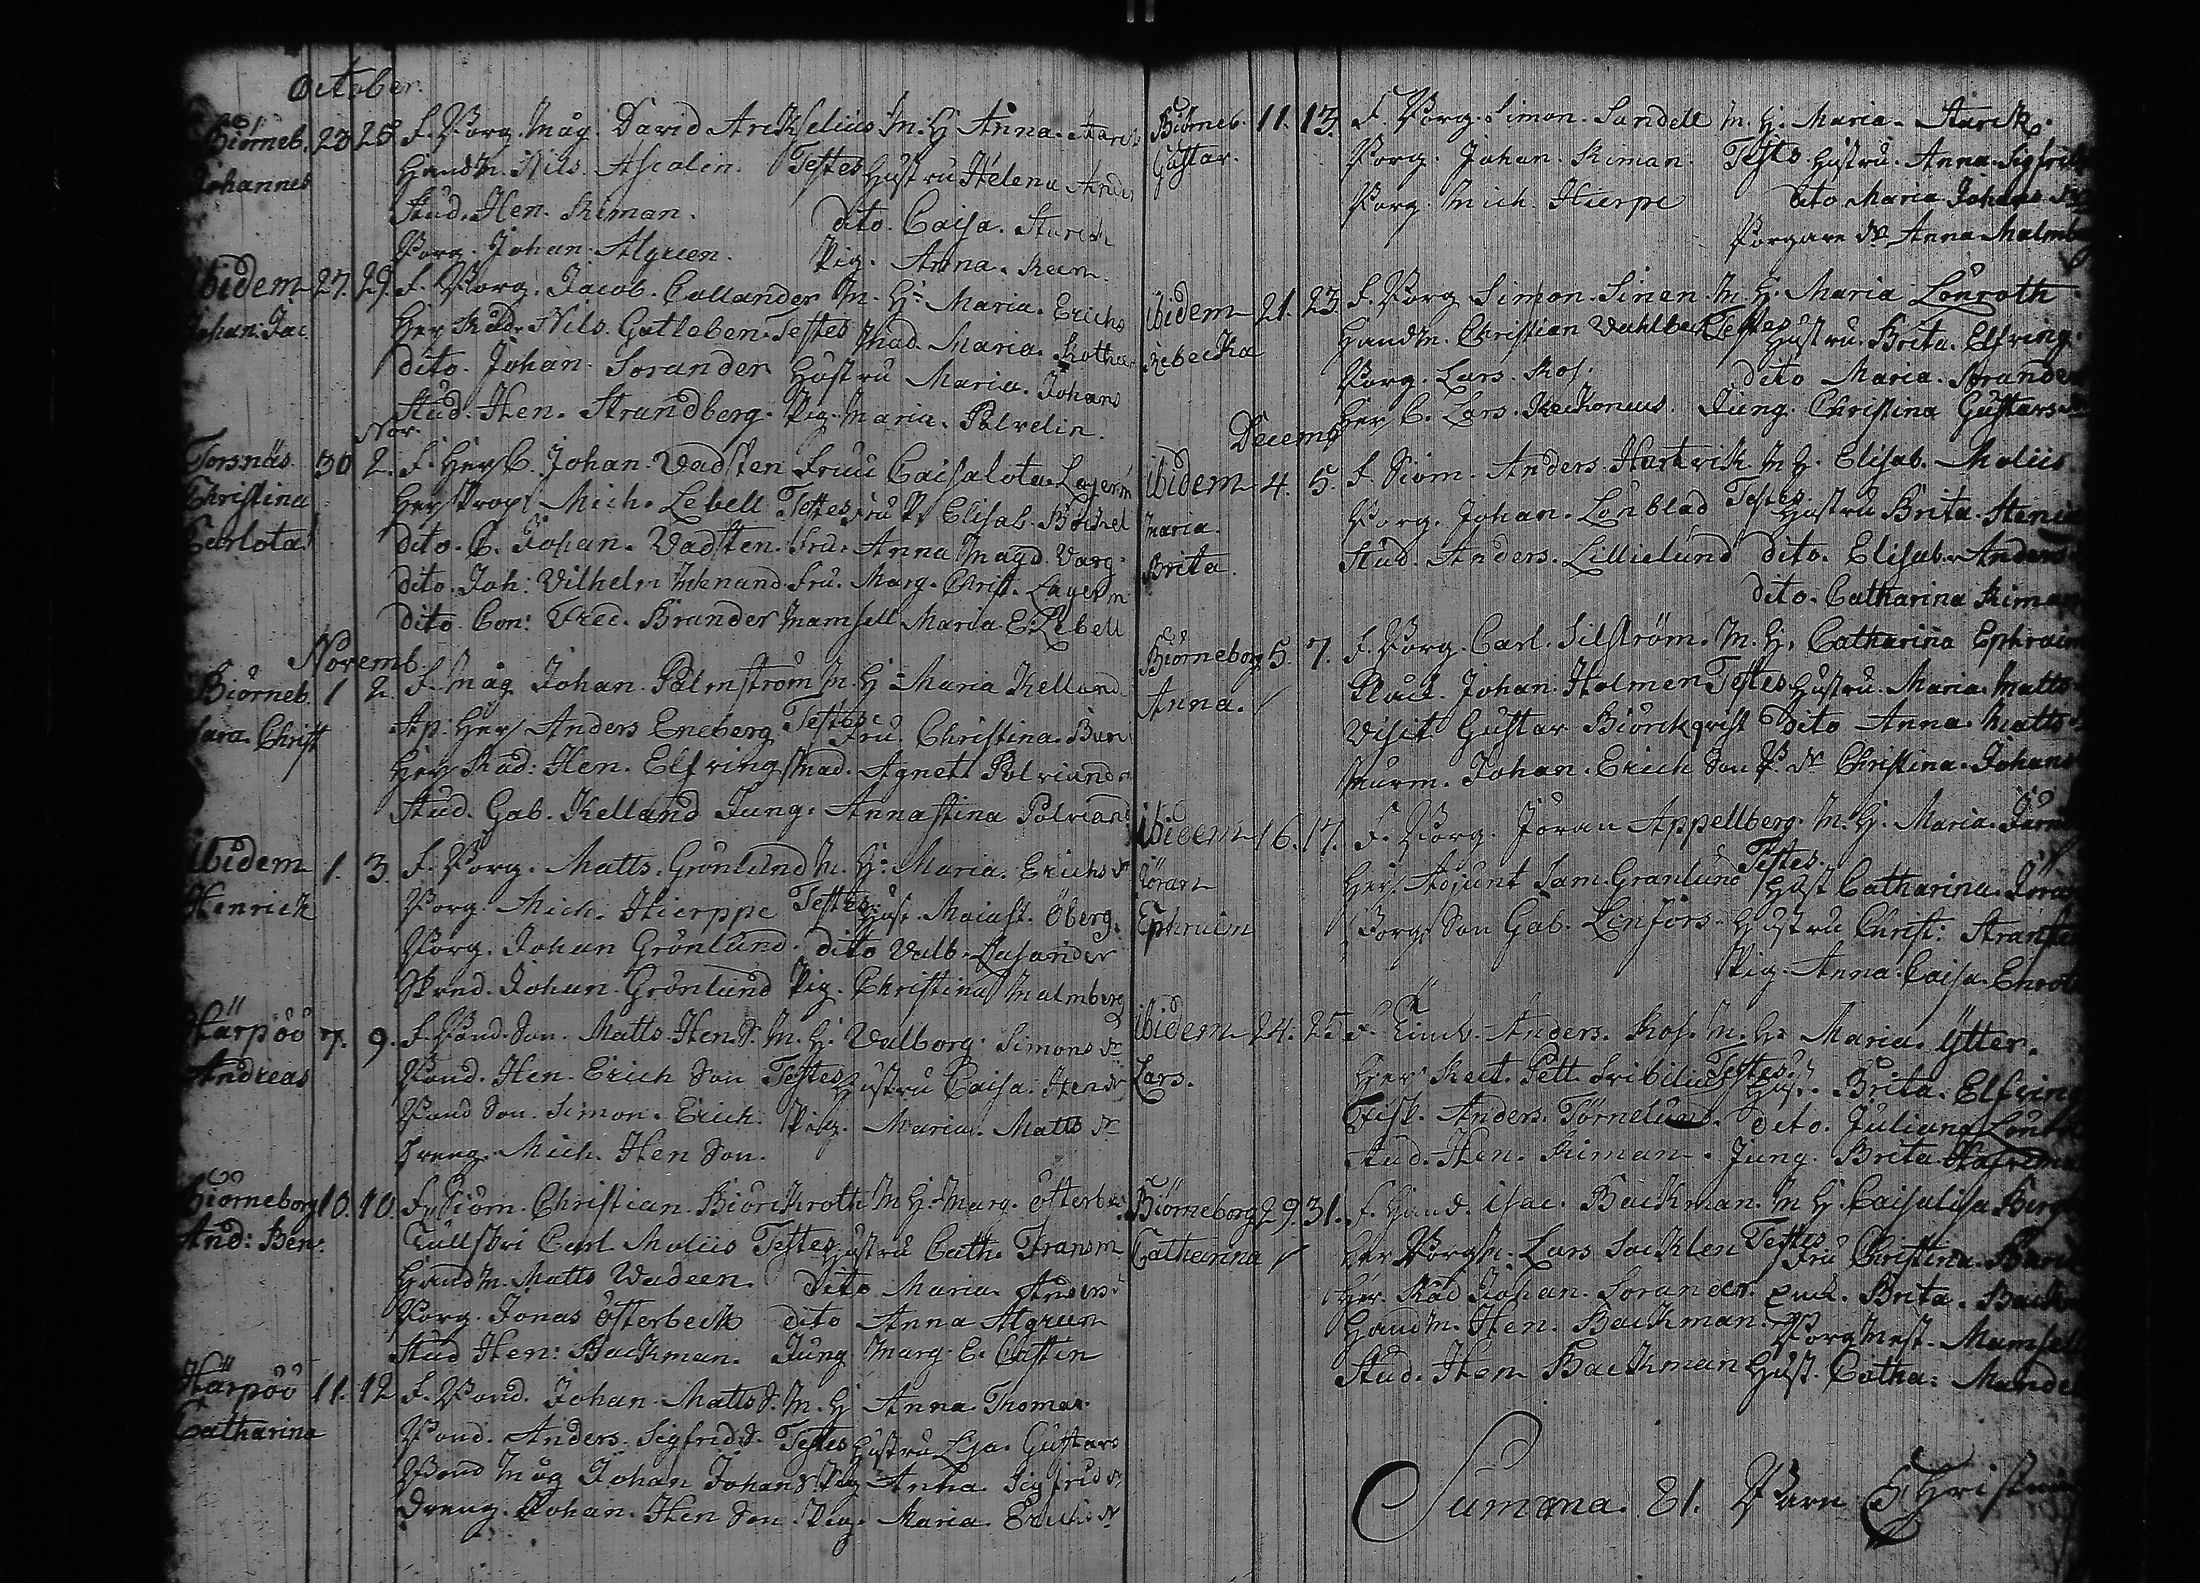 October.
Biörneb. 23 25 F. Borg. Måg. David Arckselius M. H. Anna. Starck
Johannes Handm. Nils Ascolin. Testes Hustru Helena And
Stud. Hen. Kiman. dito. Caisa. Starck
Borg. Johan Algreen. Pig. Anna. Keen.
ibidem 27. 29. F. Borg. Jacob. Callander M. H. Maria. Erichs
Johan. Jac Her Råd. Nils. Gotleben. Testes Mad. Maria. Rotha
dito. Johan. Sorander Hustru Maria. Johans
Stud. Hen. Strandberg. Pig. Maria. Polvelin.
Nov.
Torsnäs 30 2. F. Her C. Johan. Vadsten Fruu Caisalota. Lagerm
Christina Her Props Mich. Lebell Testes Fru P. Elisab. Bochel
Carlota dito. C. Johan. Vadsten. Fru. Anna Magd. Varg.
dito. Joh: Vilhelm Menand Fru. Marg. Christ. Lagerm
dito Con: Fred. Brander Mamsell Maria E. Lebell
Novemb.
Biörneb. 1 2. F. Måg. Johan. Palmström M. H. Maria Kelland
Sara. Christ Ap. Her Anders Eneberg Testes Fru. Christina. Bur
Her Råd: Hen. Elfving Mad. Agneta Polviand
Stud. Gab. Kelland Jung. Annastina Polviand
ibidem 1. 3. F. Borg. Matts. Grönlund M. H. Maria. Erichs dr
Henrich Borg. Mich. Hierppe Testes Hus. Maiast. Öberg.
Borg. Johan Grönlund. dito Valb. Lasander
Johan. Grönlund Pig. Christina Malmberg
Härpöö 7. 9. F. Bond. Son. Matts. Hen. S. M. H. Valborg. Simons dr
Andreas Bond. Hen. Erich Son Testes Hustru Caisa. Hen dr
Bond Son. Simon. Erich. Pig. Maria. Matts dr
Dreng. Mich. Hen Son.
Biörneborg 10. 10. F. Siöm. Christian. Biörckroth M H. Marg. Österbec
And: Ben: Tullskri Carl. Moliis Testes Hustru Cath. Fransm
Handm. Matts Vadeen. dito Maria. Anders
Borg. Jonas Österbeck dito Anna Algreen
Stud Hen: Backman. Jung Marg. E. Castin
Härpöö 11. 12 F. Bond. Johan. Matts S. M. H Anna Thomas.
Catharina Bond. Anders. Sigfrid S. Testes Hustru Lisa. Gustavs
Bond Måg Johan Johan S. Pig Anna. Sigfrid dr
Dreng. Johan. Hen Son. Pig. Maria. Erichs dr
Biörneb. 11. 13. F. Borg. Simon. Sandell M. H. Maria. Starck.
Gustav. Borg. Johan. Kiman. Testes. Hustru. Anna. Sigfrids
Borg. Mich. Hierpe dito Maria Johans dr
Borgare dr Anna Malmb
ibidem 21. 23. F. Borg Simon. Sinen. M. H. Maria Lönroth
Rebecka Handm. Christian Dahlberg Testes Hustru. Brita. Elfving.
Borg. Lars. Ros. dito Maria. Sorander
Her C. Lars. Keckoneus. Jung. Christina Gustavs
Decemb
ibidem 4. 5. F. Siöm. Anders Hartvik M H. Elisab. Moliis
Maria. Borg. Johan. Lönblad Testes Hustru Brita. Stenin
Brita. Stud. Anders. Lillielund dito. Elisab. Anders
dito. Catharina Kiman
Biörneborg 5. 7. F. Borg. Carl. Silström. M. H. Catharina Ephraim
Anna. Johan. Holmen Testes Hustru. Maria. Matts
Visit Gustav Biörckqvist Dito Anna. Matts
Murm. Johan. Erich Son P. dr Christina. Johans
ibidem 16. 17. F. Borg. Jöran Appellberg. M. H. Maria.
Jöran Her. Adjunt Sam. Granlund Testes. Hust Catharina. Jöran
Ephraim Borg Son Gab. Lenfors. Hustru Christ:
Pig. Anna. Caisa. Enroth
ibidem 24. 25. F. Timb. Anders. Ros. M. H. Maria. Ytter.
Lars. Her Rect. Pett. Sribilius Testes. Hus. Brita. Elfving
Fisk. Anders. Törnelund. dito. Juliana
Stud. Hen. Kiman. Jung. Brita
Biörneborg 29. 31. F. Hand. Isac. Backman. M H. Caisalisa Berg
Catharina Her Borgm. Lars Sacklen Testes Fru Christina.
Her. Råd Johan. Sorander. Enck. Brita. Backm
Handm. Hen. Backman. Borgmest. Mamsell
Stud. Hen Backman Hust. Catha: Mandel
Summa. 81. Barn Christnin